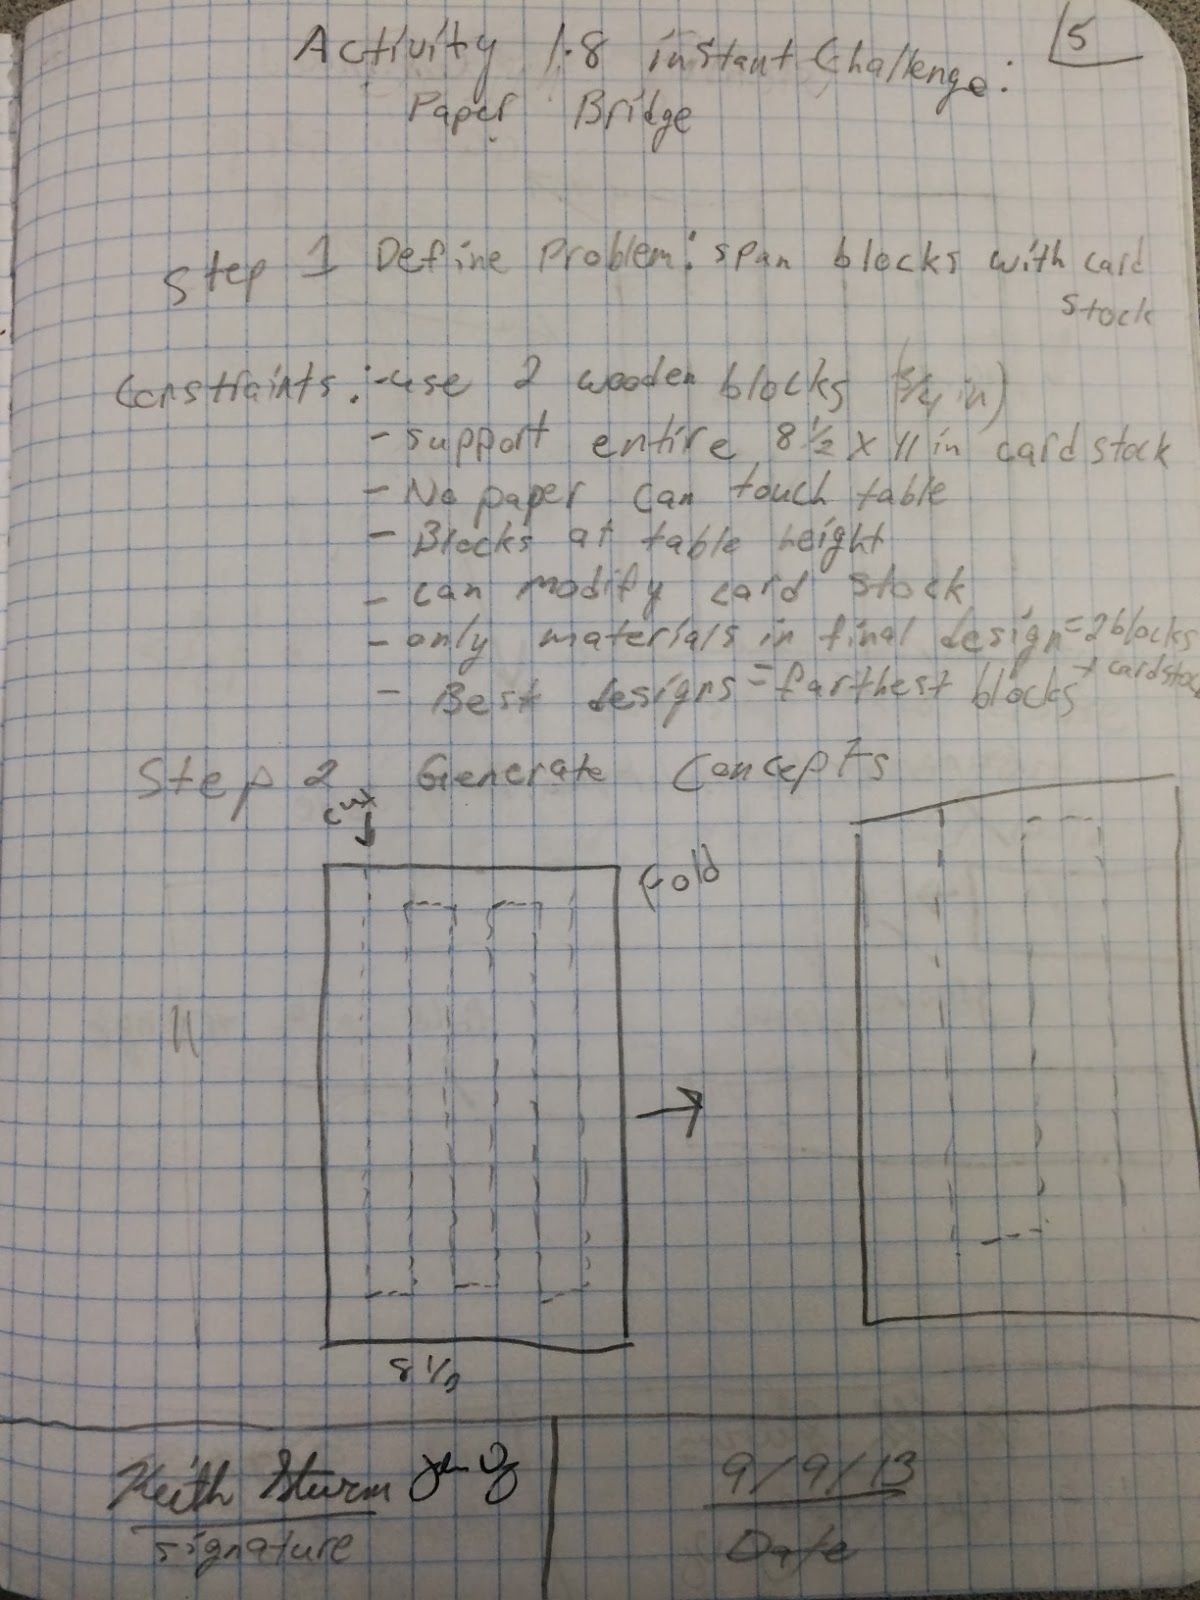 Activity 1.8 instant Challenge:
15
Paper Bridge
Step 1 Define Problem: span blocks with card
stock
Constraints: -use 2 wooden blocks ( in)
- support entire 8 1/2 x 11 in card stock
- No paper can touch table
- Blocks at table height
- can modify card stock
- only materials in final design = 2 blocks
+ cardstock
- Best designs = farthest blocks
Step 2 Generate Concepts
cut
Fold
11
8 1/2
Keith Sturm
9/9/13
signature
Date